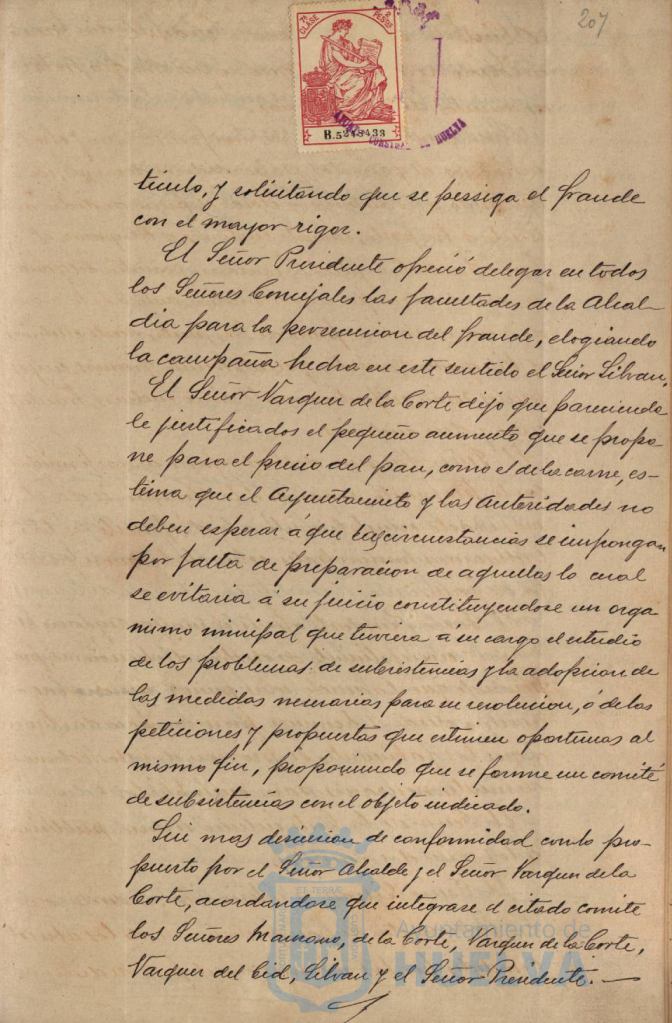 207
7ª CLASE
2 PESETAS
B.5248433
AYUNT. CONSTNAL. DE HUELVA
tículo, y solicitando que se pessiga el fraude
con el mayor rigor.
El Señor Presidente ofreció delegar en todos
los Señores Concejales las facultades de la Alcal-
dia para la persecucion del fraude, elogiando
la campaña hecha en este sentido el Señor Silvan.
El Señor Vazquez de la Corte dijo que pareciendo
le justificados el pequeño aumento que se propo
ne para el precio del pan, como el de la carne, es-
tima que el Ayuntamiento y las Autoridades no
deben esperar á que las circunstancias se impongan
por falta de preparacion de aquellas lo cual
se evitaria á su juicio constituyendose un orga
nismo minipal que tuviera á su cargo el estudio
de los problemas de subsistencias y la adopcion de
las medidas necesarias para su resolucion, ó de las
peticiones y propuestas que estimen oportunas al
mismo fin, proponiendo que se forme un comité
de subsistencias con el objeto indicado.
Sin mas discusion de conformidad con lo pro-
puesto por el Señor Alcalde y el Señor Vazquez de la
Corte, acordandose que integrase el citado comite
los Señores Mascaros, de la Corte, Vazquez de la Corte,
Vazquez del Cid, Silvan y el Señor Presidente.
Ayuntamiento de
HUELVA